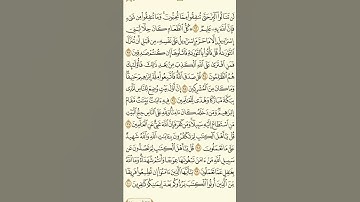 لَن تَنَالُوا۟ ٱلْبِرَّ حَتَّىٰ تُنفِقُوا۟ مِمَّا تُحِبُّونَ ۚ وَمَا تُنفِقُوا۟ مِن شَىْءٍ
فَإِنَّ ٱللَّهَ بِهِۦ عَلِيمٌ ٩٢ ۞ كُلُّ ٱلطَّعَامِ كَانَ حِلًّا لِّبَنِىٓ
إِسْرَٰٓءِيلَ إِلَّا مَا حَرَّمَ إِسْرَٰٓءِيلُ عَلَىٰ نَفْسِهِۦ مِن قَبْلِ أَن تُنَزَّلَ
ٱلتَّوْرَىٰةُ ۗ قُلْ فَأْتُوا۟ بِٱلتَّوْرَىٰةِ فَٱتْلُوهَآ إِن كُنتُمْ صَـٰدِقِينَ ٩٣
فَمَنِ ٱفْتَرَىٰ عَلَى ٱللَّهِ ٱلْكَذِبَ مِنۢ بَعْدِ ذَٰلِكَ فَأُو۟لَـٰٓئِكَ
هُمُ ٱلظَّـٰلِمُونَ ٩٤ قُلْ صَدَقَ ٱللَّهُ ۗ فَٱتَّبِعُوا۟ مِلَّةَ إِبْرَٰهِيمَ حَنِيفًا
وَمَا كَانَ مِنَ ٱلْمُشْرِكِينَ ٩٥ إِنَّ أَوَّلَ بَيْتٍ وُضِعَ لِلنَّاسِ لَلَّذِى
بِبَكَّةَ مُبَارَكًا وَهُدًى لِّلْعَـٰلَمِينَ ٩٦ فِيهِ ءَايَـٰتٌۢ بَيِّنَـٰتٌ مَّقَامُ
إِبْرَٰهِيمَ ۖ وَمَن دَخَلَهُۥ كَانَ ءَامِنًا ۗ وَلِلَّهِ عَلَى ٱلنَّاسِ حِجُّ ٱلْبَيْتِ
مَنِ ٱسْتَطَاعَ إِلَيْهِ سَبِيلًا ۚ وَمَن كَفَرَ فَإِنَّ ٱللَّهَ غَنِىٌّ عَنِ ٱلْعَـٰلَمِينَ ٩٧
قُلْ يَـٰٓأَهْلَ ٱلْكِتَـٰبِ لِمَ تَكْفُرُونَ بِـَٔايَـٰتِ ٱللَّهِ وَٱللَّهُ شَهِيدٌ
عَلَىٰ مَا تَعْمَلُونَ ٩٨ قُلْ يَـٰٓأَهْلَ ٱلْكِتَـٰبِ لِمَ تَصُدُّونَ عَن
سَبِيلِ ٱللَّهِ مَنْ ءَامَنَ تَبْغُونَهَا عِوَجًا وَأَنتُمْ شُهَدَآءُ ۗ وَمَا ٱللَّهُ
بِغَـٰفِلٍ عَمَّا تَعْمَلُونَ ٩٩ يَـٰٓأَيُّهَا ٱلَّذِينَ ءَامَنُوٓا۟ إِن تُطِيعُوا۟ فَرِيقًا
مِّنَ ٱلَّذِينَ أُوتُوا۟ ٱلْكِتَـٰبَ يَرُدُّوكُم بَعْدَ إِيمَـٰنِكُمْ كَـٰفِرِينَ ١٠٠